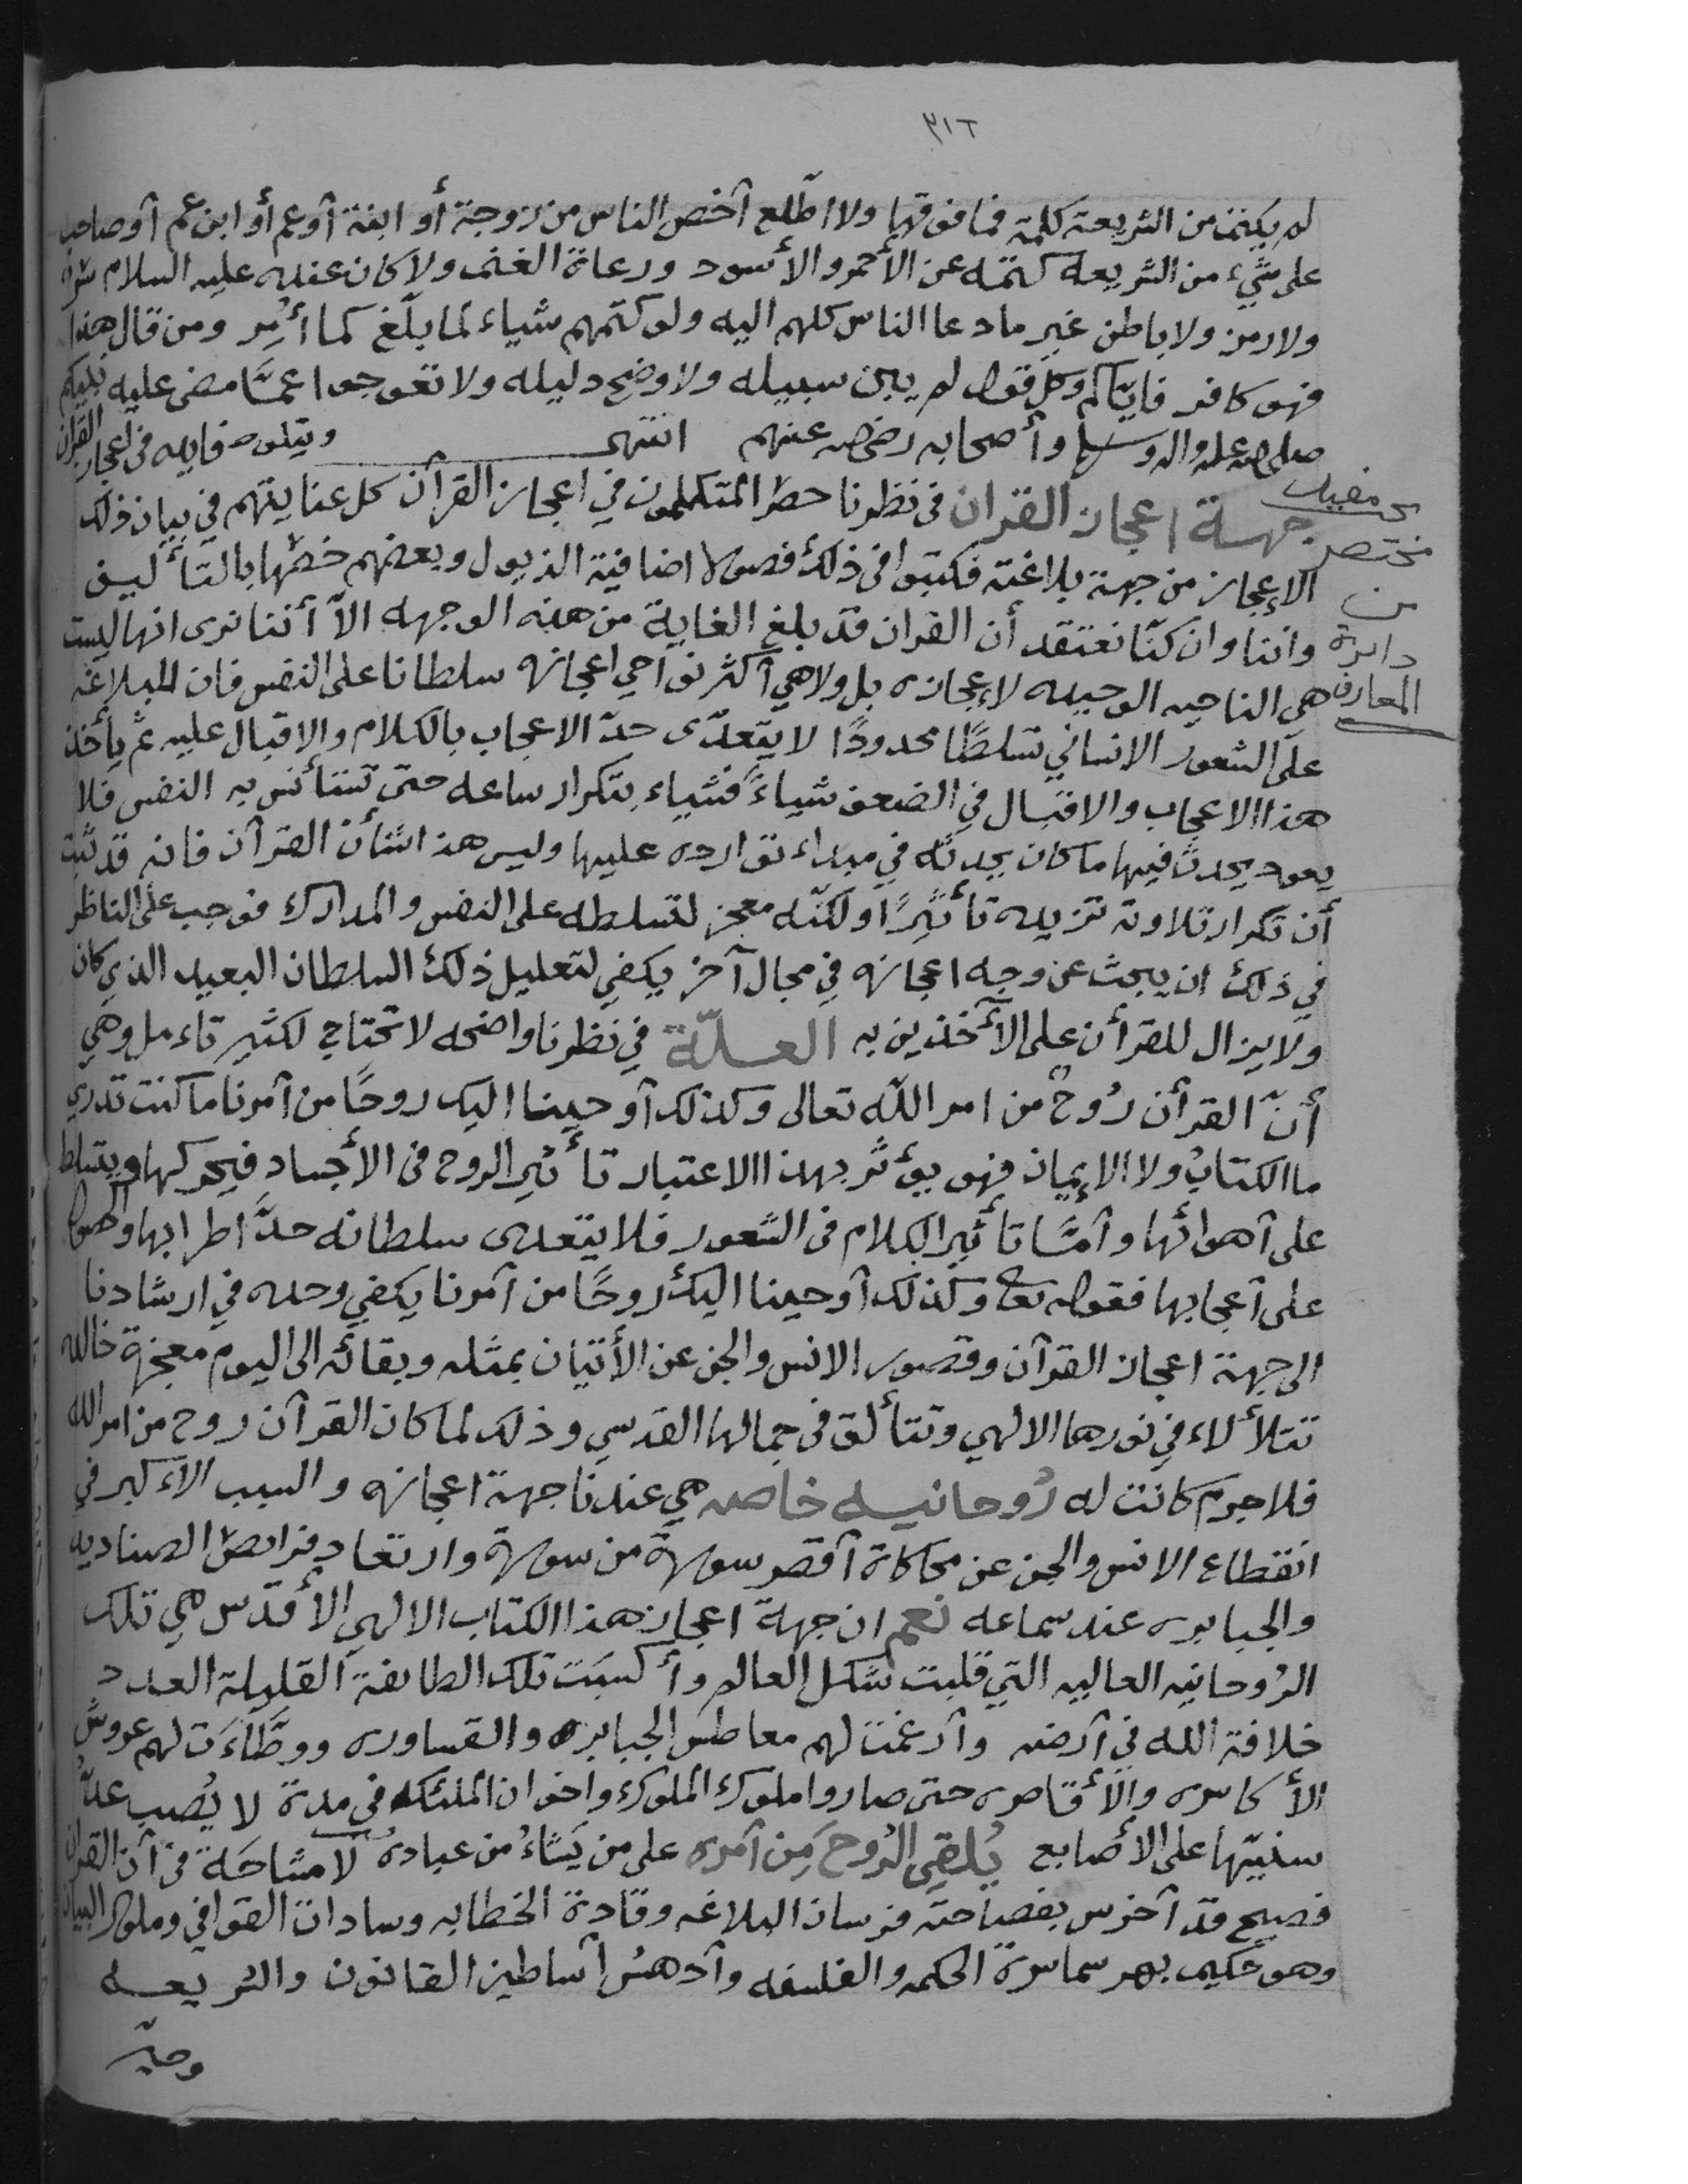 ٣١٢
لم يكتم من الشريعة كلمة فما فوقها ولا اطّلع أخصّ الناس من زوجة أو ابنة أو عم أو ابن عم أو صاحب
على شيء من الشريعه كتمه عن الأحمر والأسود ورعاة الغنم ولا كان عنده عليه السلام سر
ولا رمز ولا باطن غير ما دعا الناس كلهم اليه ولو كتمهم شياء لما بلّغ كما أُمِر ومن قال هذا
فهو كافر فايّاكم وكل قول لم يبن سبيله ولا وضح دليله ولا تعوجوا عمّا مضى عليه نبيكم
صلى الله عليه واله وسلم وأصحابه رضى الله عنهم انتهى ويتلوه فايده في اعجاز القران
بحث مفيد
مختصر
من
دايرة
المعارف
جهة اعجاز القران في نظرنا حصر المتكلمون في اعجاز القرآن كل عنايتهم في بيان ذلك
الإعجاز من جهة بلاغته فكتبوا في ذلك فصولا اضافية الذيول وبعضهم خصّها بالتأليف
واننا وان كنّا نعتقد أن القران قد بلغ الغاية من هذه الوجهه الاّ أننا نرى انها ليست
هي الناحيه الوحيده لإعجازه بل ولا هي أكثر نواحي اعجازه سلطانا على النفس فان للبلاغه
على الشعور الانساني تسلطًا محدودًا لا يتعدّى حدّ الاعجاب بالكلام والاقبال عليه ثم يأخذ
هذا الاعجاب والاقبال في الضعف شياءً فشياء بتكرار سماعه حتى تستأنس به النفس فلا
يعود يحدث فيها ما كان يحدثه في مبداء توارده عليها وليس هذا شأن القرآن فانه قد ثبت
أن تكرار تلاوته تزيده تأثيرًا ولكنّه معجز لتسلطه على النفس والمدارك فوجب على الناظر
في ذلك ان يبحث عن وجه اعجازه في مجال آخر يكفي لتعليل ذلك السلطان البعيد الذي كان
ولا يزال للقرأن على الآخذين به العلّة في نظرنا واضحه لا تحتاج لكثير تاءمل وهي
أنّ القرأن رُوحٌ من امر الله تعالى وكذلك أوحينا اليك روحًا من أمرنا ما كنت تدري
ما الكتابُ ولا الإيمان فهو يؤثر بهذا الاعتبار تأثير الروح في الأجساد فيحركها ويتسلط
على أهوائها وأمّا تأثير الكلام في الشعور فلا يتعدى سلطانه حدّ اطرابها والحصول
على أعجابها فقوله تعالى وكذلك أوحينا اليك روحًا من أمرنا يكفي وحده في ارشادنا
الى جهة اعجاز القرآن وقصور الانس والجن عن الأتيان بمثله وبقائه الى اليوم معجزة خالده
تتلألاء في نورها الالهي وتتألق في جمالها القدسي وذلك لما كان القرآن روح من امر الله
فلا جرم كانت له رُوحانيه خاصه هي عندنا جهة اعجازه والسبب الأكبر في
انقطاع الانس والجن عن محاكاة أقصر سورة من سوره وارتعاد فرائص الصناديد
والجبابره عند سماعه نعم ان جهة اعجاز هذا الكتاب الالهي الأقدس هي تلك
الرُوحانيه العاليه التي قلبت شكل العالم وأكسبَت تلك الطائفة القليلة العدد
خلافة الله في أرضه وأرغمت لهم معاطس الجبابره والقساوره ووطَّاءَت لهم عروش
الأكاسره والأقاصره حتى صاروا ملوك الملوك واخوان الملئكه في مدة لا يُصب عدّ
سنيّها على الأصابع يُلقِي الرُوحَ مِن أمره على من يَشاءُ من عباده لا مشاحة في أن القران
فصيح قد أخرس بفصاحته فرسان البلاغه وقادة الخطابه وسادات القوافي وملوك البيان
وهو حكيم بهر سماسرة الحكمه والفلسفه وأدهش أساطين القانون والشريعه
وحيّر